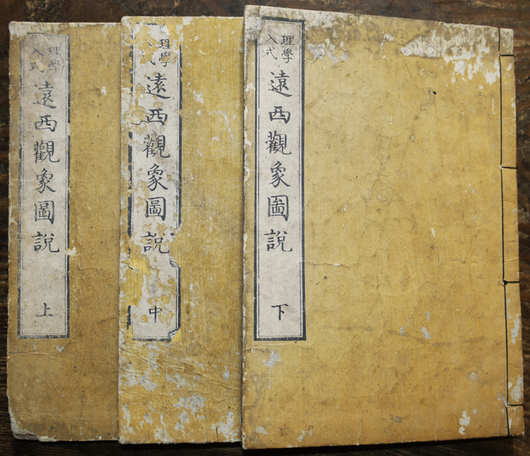 理學
入式
遠西觀象圖說 上
理學
入式
遠西觀象圖說 中
理學
入式
遠西觀象圖說 下